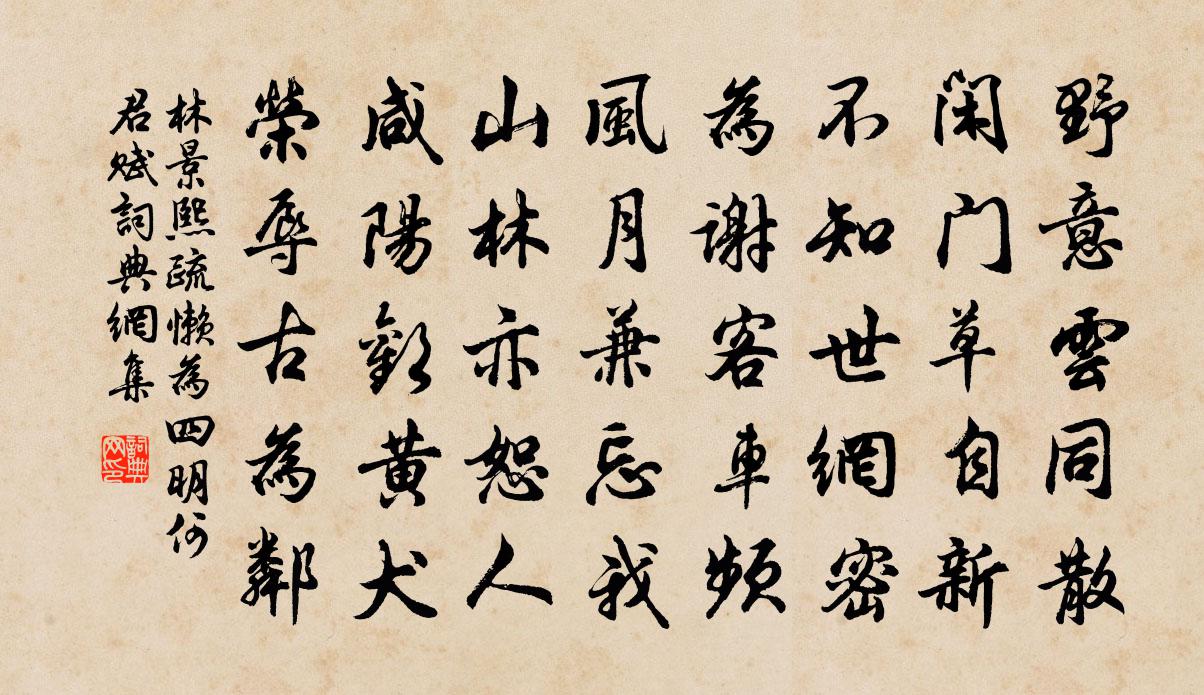 野意雲同散
閑门草自新
不知世網密
為谢客車频
風月兼忘我
山林亦恕人
咸陽歎黃犬
榮辱古為鄰
林景熙疏懒為四明何
君賦詞典網集
詞典
网印